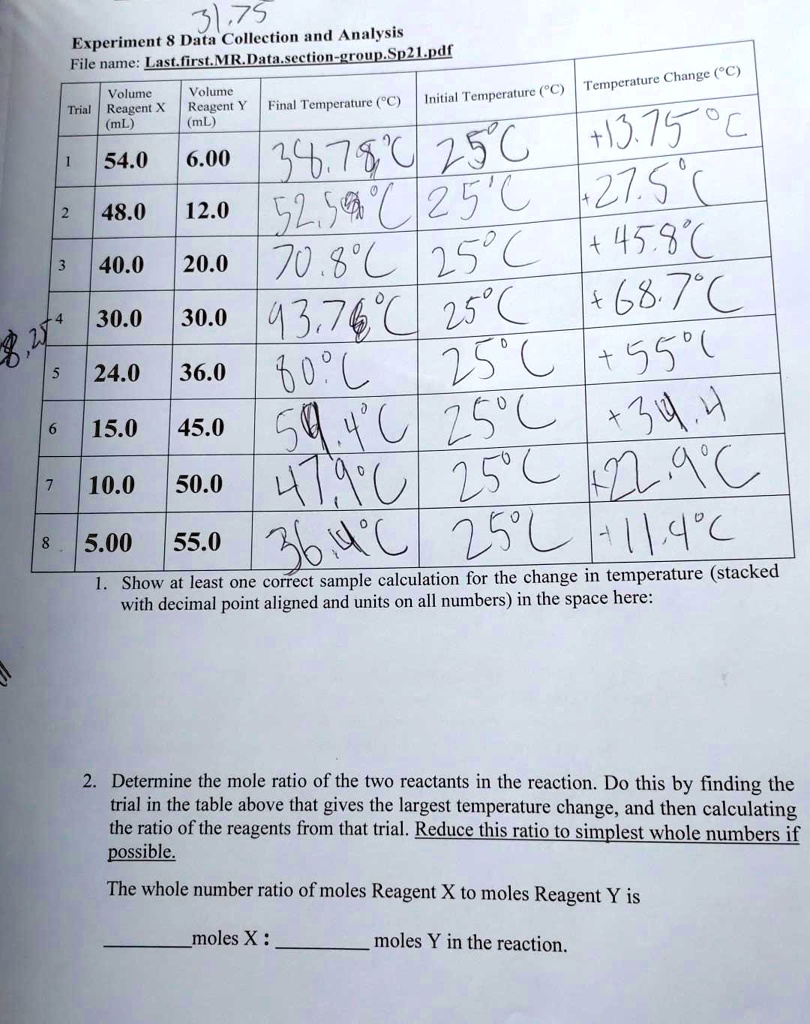 31.75
Experiment 8 Data Collection and Analysis
File name: Last.first.MR.Data.section-group.Sp21.pdf
Trial Volume Reagent X (mL) Volume Reagent Y (mL) Final Temperature (°C) Initial Temperature (°C) Temperature Change (°C)
1 54.0 6.00 38.78°C 25°C +13.75°C
2 48.0 12.0 52.5 °C 25°C +27.5°C
3 40.0 20.0 70.8°C 25°C +45.8°C
4 30.0 30.0 93.7 °C 25°C +68.7°C
8.25
5 24.0 36.0 80°C 25°C +55°C
6 15.0 45.0 59.4°C 25°C +34.4
7 10.0 50.0 47.9°C 25°C +22.9°C
8 5.00 55.0 36.4°C 25°C +11.4°C
1. Show at least one correct sample calculation for the change in temperature (stacked
with decimal point aligned and units on all numbers) in the space here:
2. Determine the mole ratio of the two reactants in the reaction. Do this by finding the
trial in the table above that gives the largest temperature change, and then calculating
the ratio of the reagents from that trial. Reduce this ratio to simplest whole numbers if
possible.
The whole number ratio of moles Reagent X to moles Reagent Y is
________moles X : ________ moles Y in the reaction.